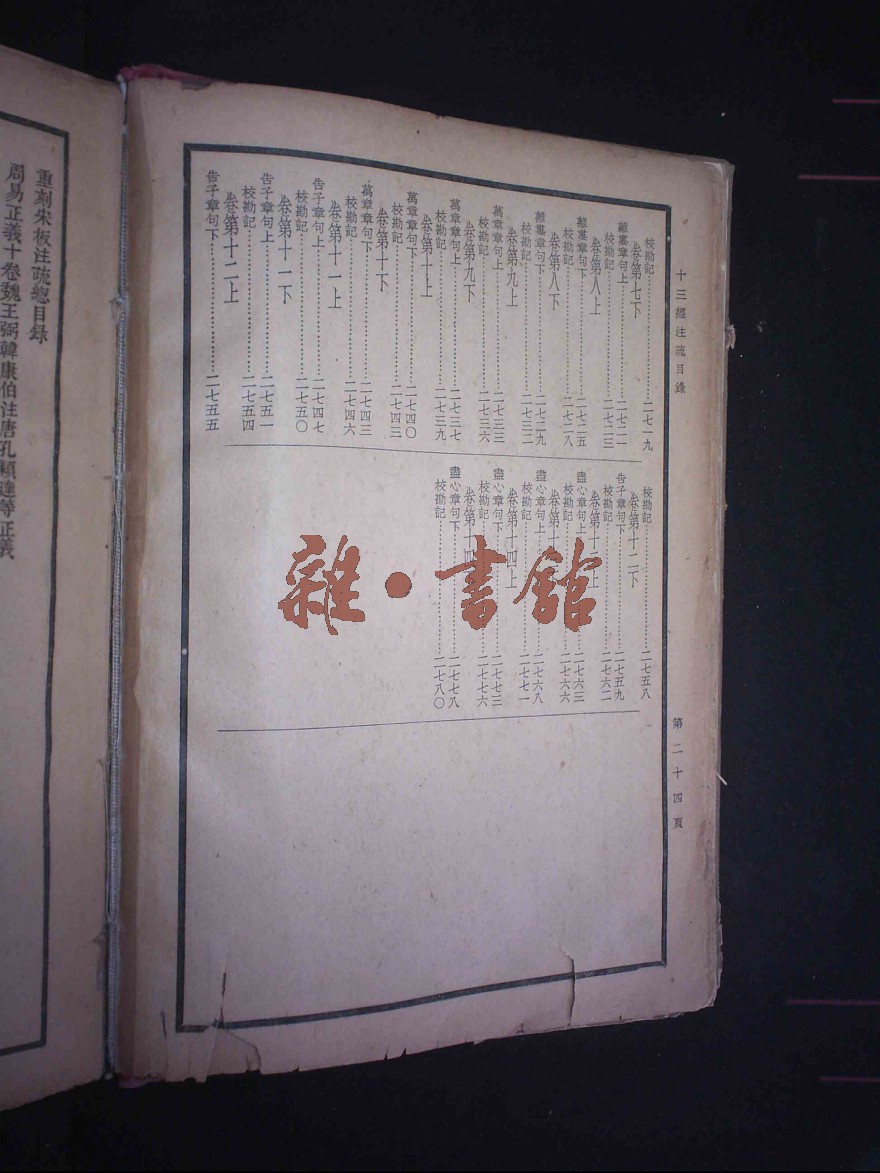 十三經注疏目錄
第二十四頁
校勘記……二七一九
卷第七下
離婁章句上……二七二一
校勘記……二七二三
卷第八上
離婁章句下……二七二五
校勘記……二七二八
卷第八下
離婁章句下……二七二九
校勘記……二七三二
卷第九上
萬章章句上……二七三三
校勘記……二七三六
卷第九下
萬章章句上……二七三七
校勘記……二七三九
卷第十上
萬章章句下……二七四〇
校勘記……二七四三
卷第十下
萬章章句下……二七四三
校勘記……二七四六
卷第十一上
告子章句上……二七四七
校勘記……二七五〇
卷第十一下
告子章句上……二七五一
校勘記……二七五四
卷第十二上
告子章句下……二七五五
校勘記……二七五八
卷第十二下
告子章句下……二七五九
校勘記……二七六二
卷第十三上
盡心章句上……二七六三
校勘記……二七六六
卷第十
盡心章句上……二七六八
校勘記……二七七一
卷第十四上
盡心章句下……二七七三
校勘記……二七七六
卷第十四
盡心章句下……二七七八
校勘記……二七八〇
雜·書館
重刻宋板注疏總目錄
周易正義十卷魏王弼韓康伯注唐孔穎達等正義